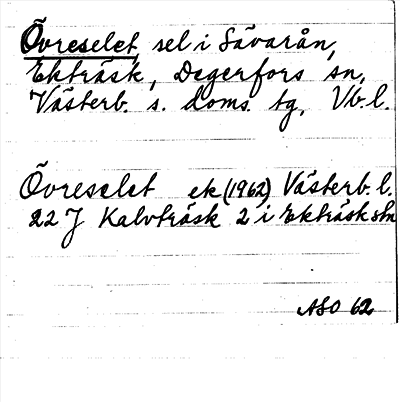 Övreselet, sel i Sävarån,
Ekträsk, Degerfors sn,
Västerb. s. doms. tg, Vb. l.
Övreselet ek (1962) Västerb. l.
22 J Kalvträsk 2 i Ekträsk
ASO 62